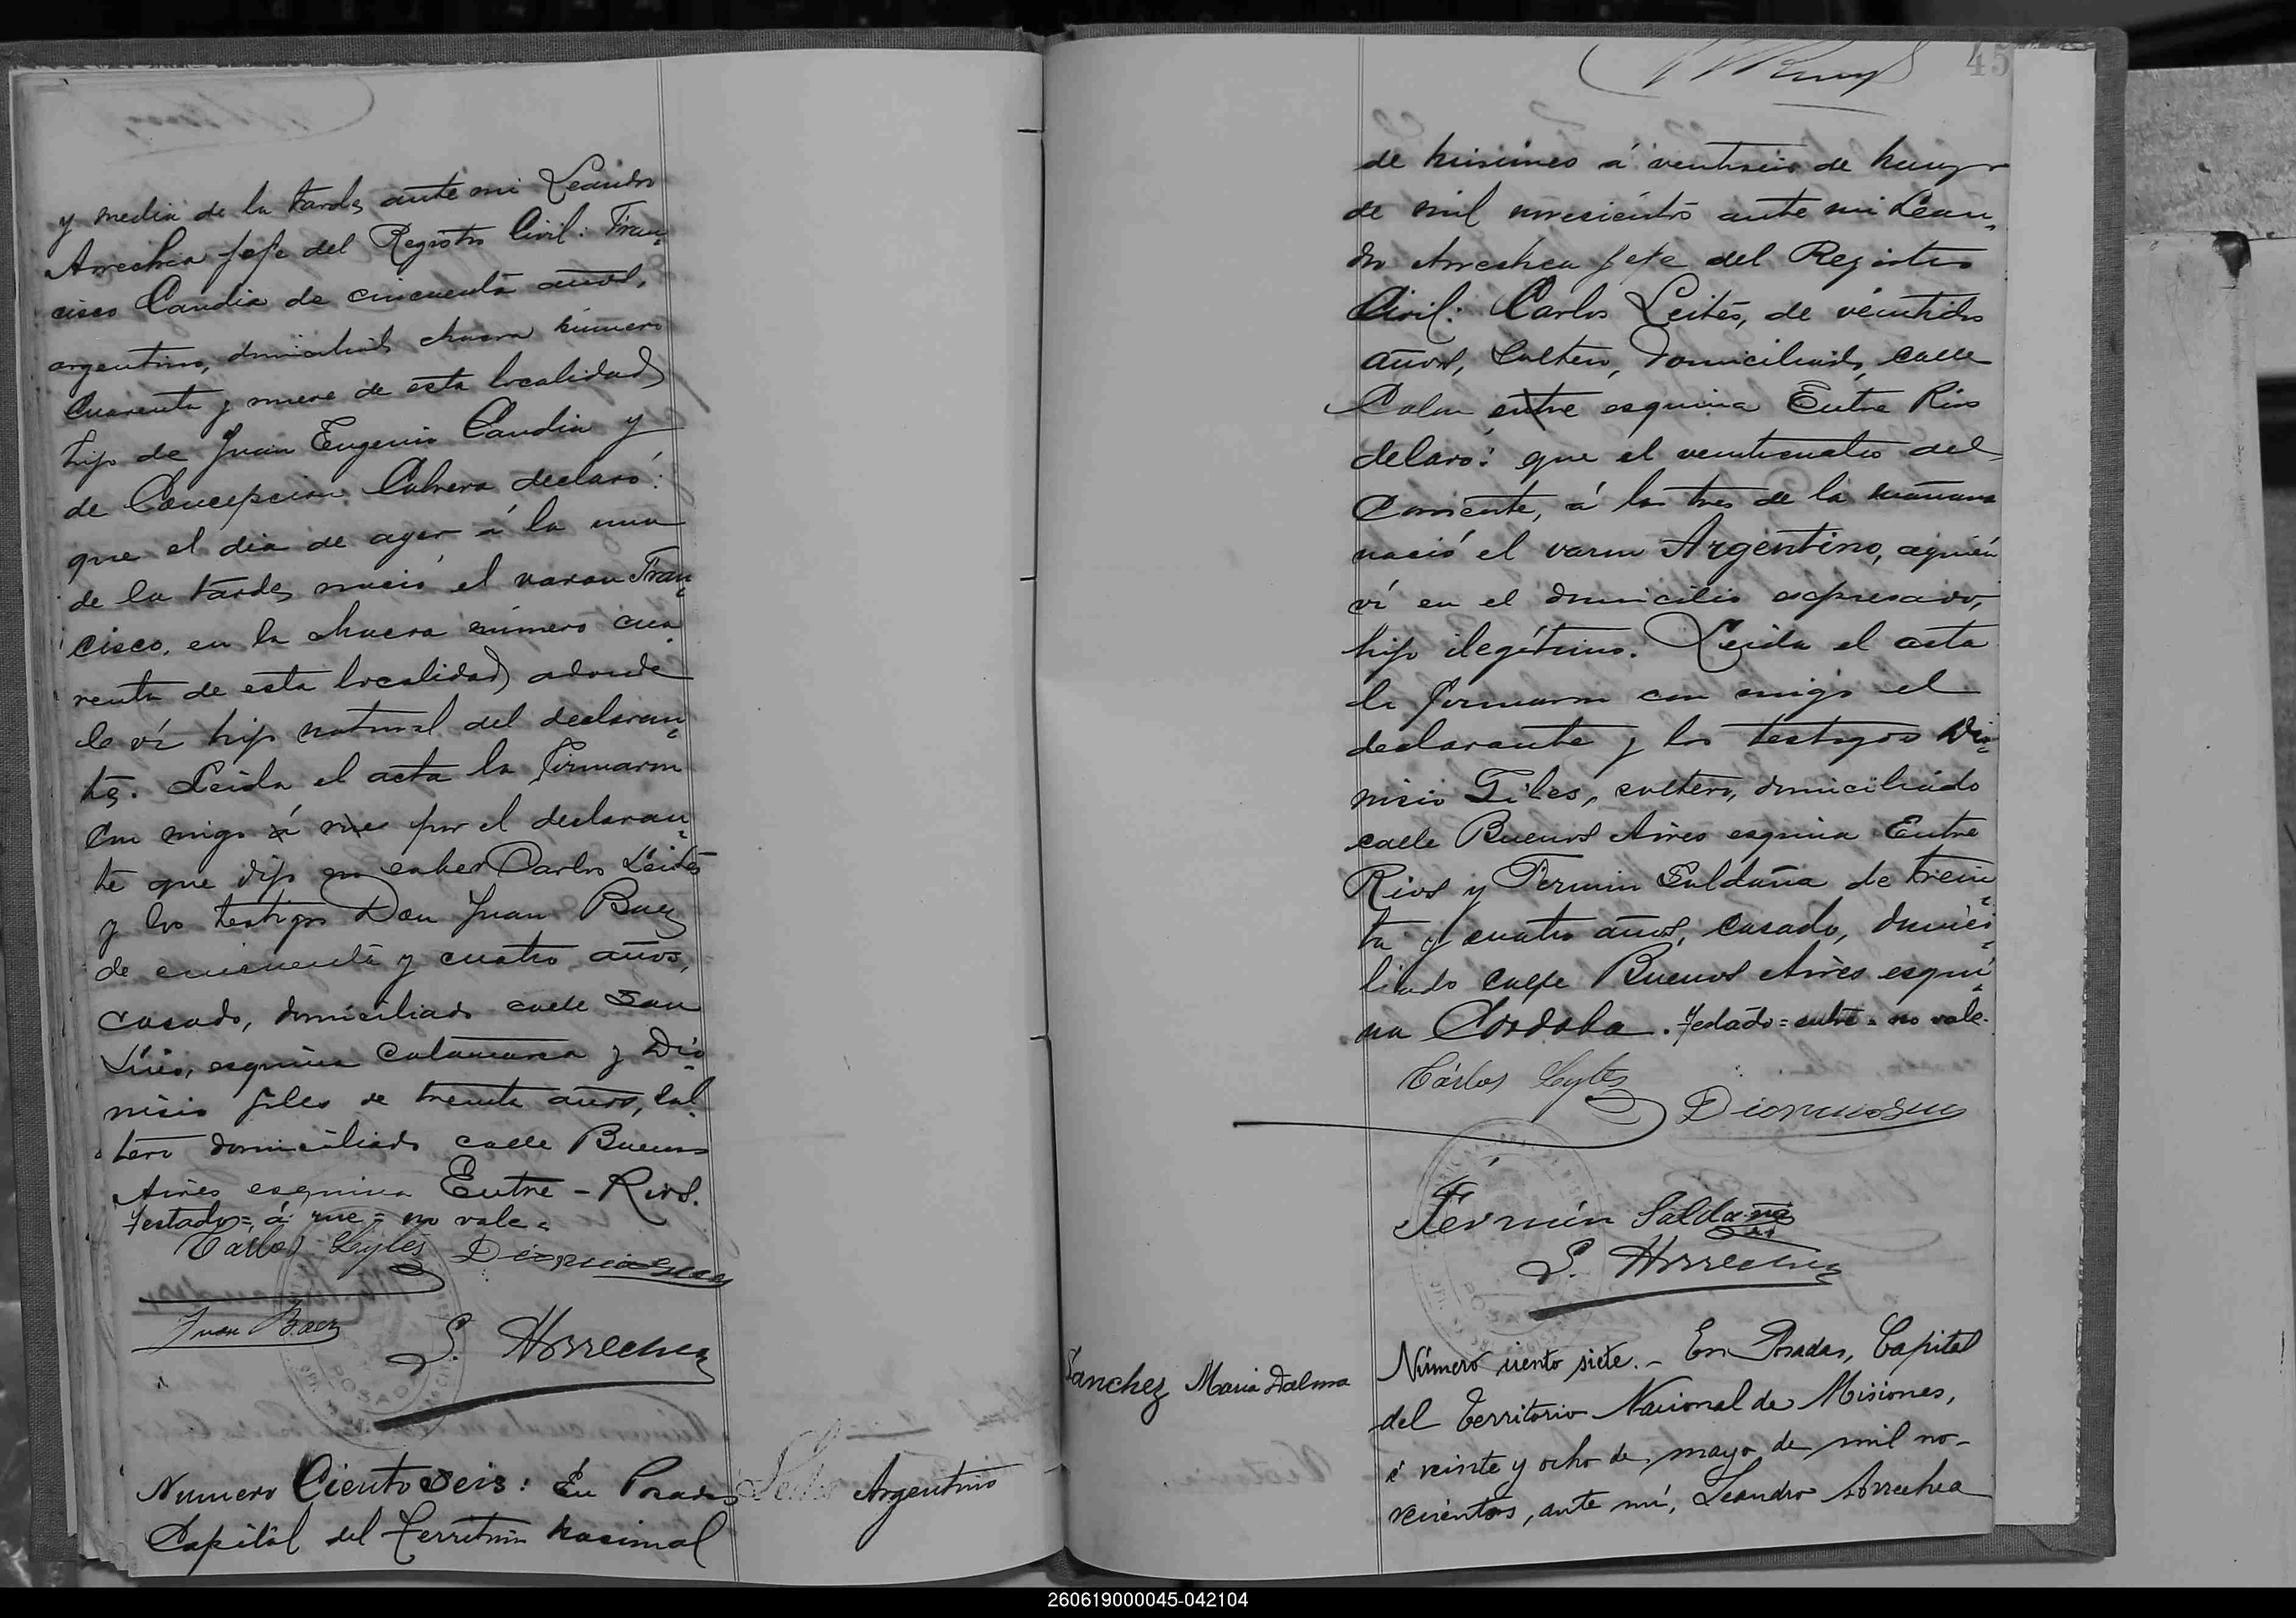 y media de la tarde, ante mi Leandro
Arrechea Jefe del Registro Civil: Fran-
cisco Candia de cincuenta años,
argentino, domiciliado chacra número
cuarenta y nueve de esta localidad
hijo de Juan Eugenio Candia y
de Concepcion Cabrera declaró:
que el dia de ayer á la una
de la tarde, nació el varon Fran-
cisco, en la chacra número cua
renta de esta localidad adonde
le ví hijo natural del declaran-
te. Leida el acta la firmaron
con migo á rue por el declaran-
te que dijo no saber Carlos Leites
y los testigos Don Juan Baez
de cincuenta y cuatro años,
casado, domiciliado calle San
Luis, esquina Catamarca y Dio-
nisio Giles de treinta años, sol-
tero domiciliado calle Buenos
Aires esquina Entre-Rios.
Testado=á rue=no vale=
Cárlos Leytes
Juan Baez
L. Arrechea
Numero Ciento seis: En Posadas
Capital del Territorio Nacional
Argentino
45
de Misiones á veintiseis de Mayo
de mil novecientos ante mi Lean-
dro Arrechea Jefe del Registro
Civil: Carlos Leites, de veintidos
años, soltero, domiciliado, calle
Colon entre esquina Entre Rios
delaró: que el veinticuatro del
corriente, á las tres de la mañana
nació el varon Argentino, aquién
ví en el domicilio espresado,
hijo ilegítimo. Leida el acta
la firmaron con migo el
declarante y los testigos Dio-
nisio Giles, soltero, domiciliado
calle Buenos Aires esquina Entre
Rios y Fermin Saldaña de trein-
ta y cuatro años, casado, domici-
liado calle Buenos Aires esqui-
na Córdoba. Testado=entre=no vale.
Cárlos Leytes
Fermín Saldaña
L. Arrechea
Sanchez Maria Dalma
Número ciento siete.- En Posadas, Capital
del Territorio Nacional de Misiones,
á veinte y ocho de mayo de mil no-
vecientos, ante mí, Leandro Arrechea
260619000045-042104